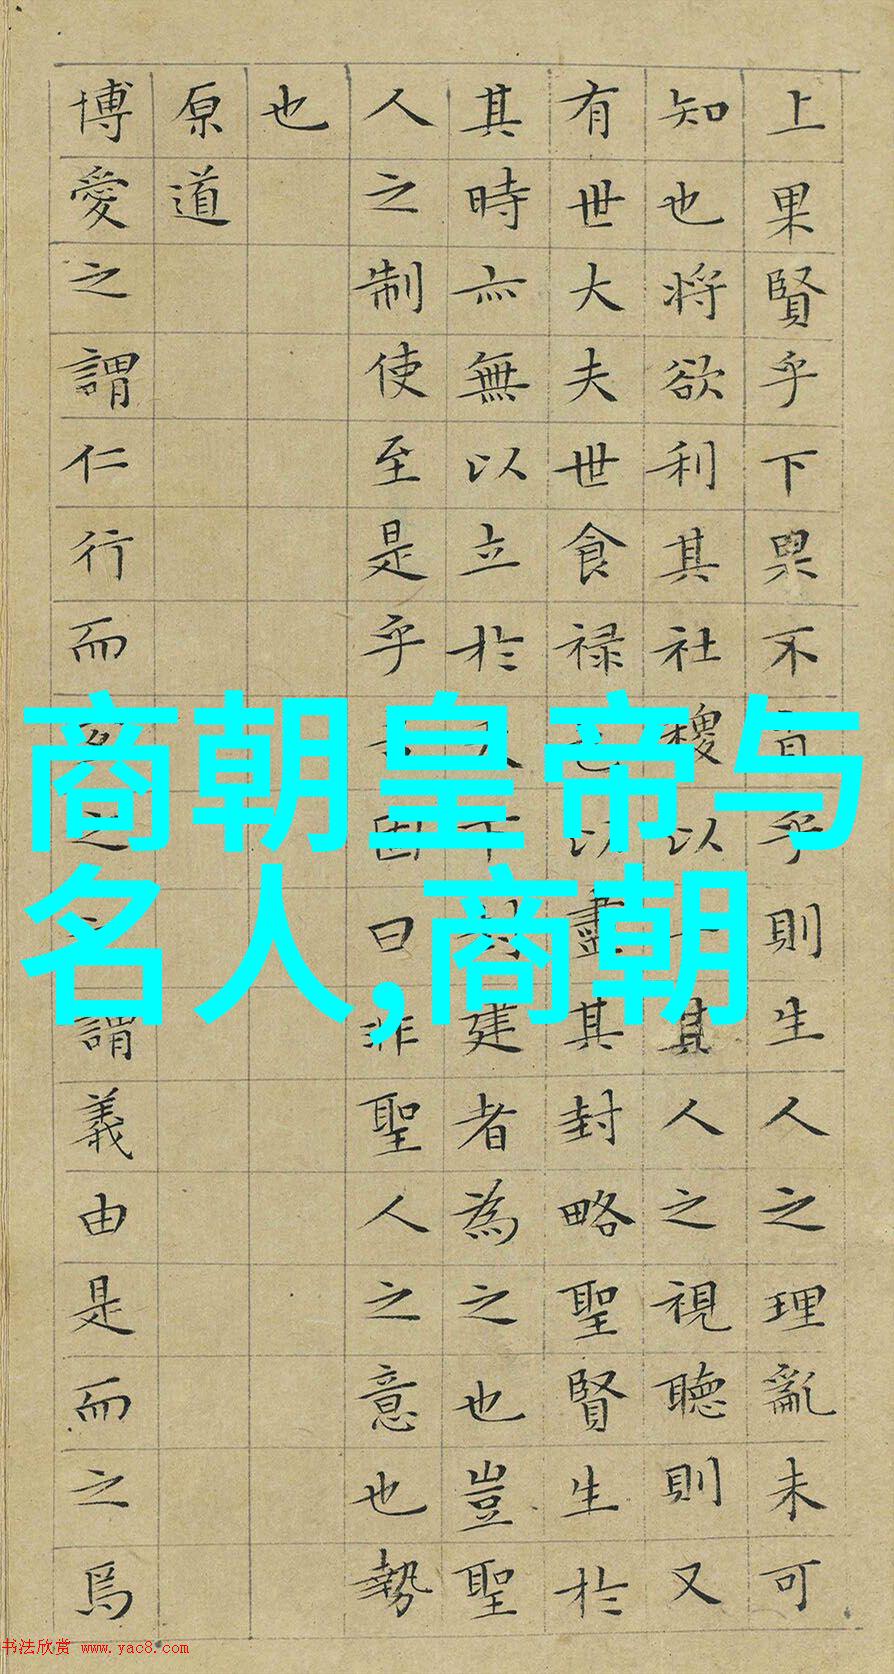 上果賢乎下果不肖乎則生人之理亂未可
知也將欲利其社稷以一其人之視聽則又
有世大夫世食禄也以盡其封略聖賢生於
其時亦無以立於天下封建者為之也豈聖
人之制使至是乎吾固曰非聖人之意也勢
也
原道
博愛之謂仁行而宜之之謂義由是而之焉
商朝皇帝与
名人,商朝
书法欣赏 www.yac8.com